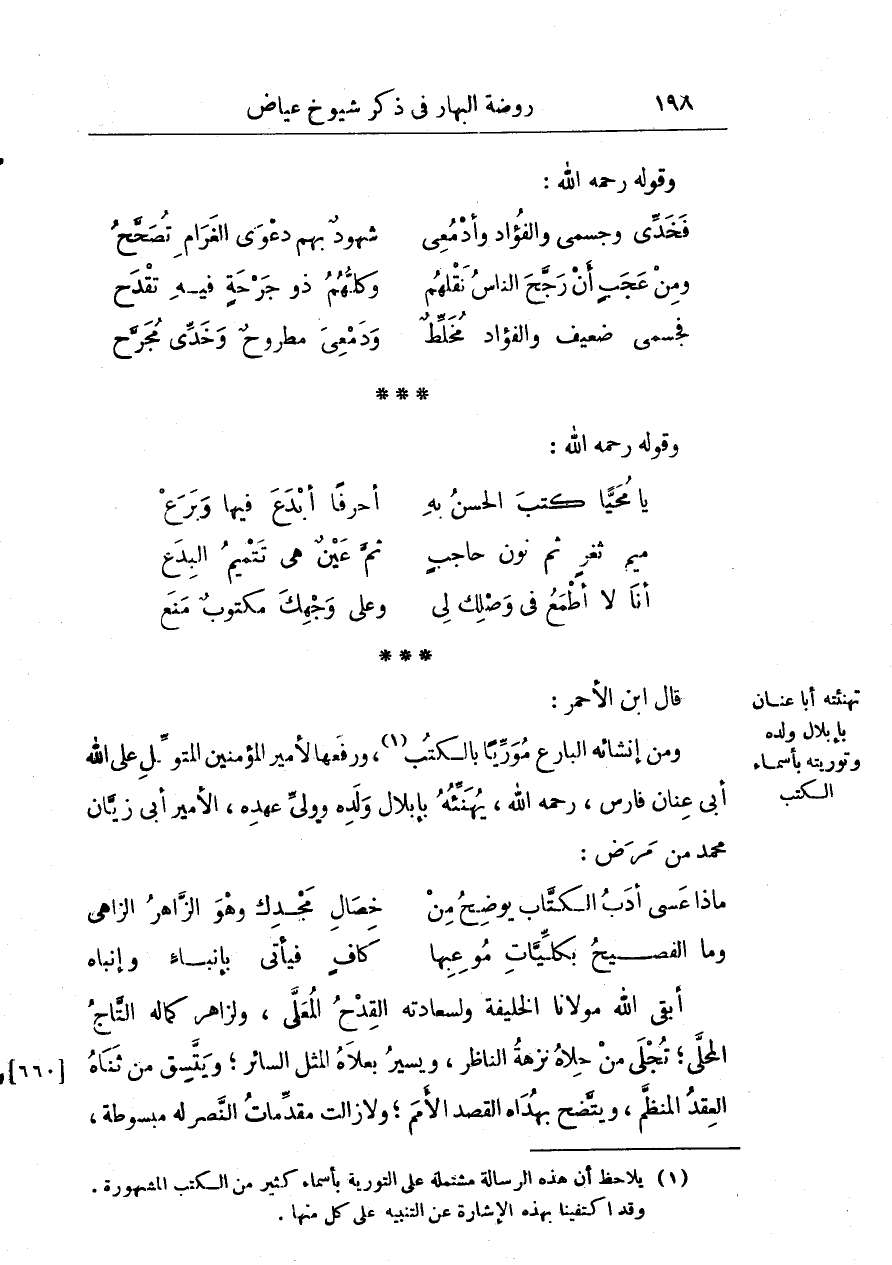 ١٩٨ روضة البهار فى ذكر شيوخ عياض
وقوله رحمه الله :
فَخَدِّى وجسمى والفُؤاد وأدْمُعِى شهودٌ بهم دعْوَى الغَرَامِ تُصَحَّحُ
ومِنْ عَجَبٍ أَنْ رَجَّحَ الناسُ نَقْلهُم وكلهُّمُ ذو جَرْحَةٍ فيـهِ تقْدَح
فجسمى ضعيف والفؤاد مُخَلِّطٌ وَدَمْعِىَ مطروحٌ وَخَدِّى مُجَرَّح
***
وقوله رحمه الله :
يا مُحَيًّا كتبَ الحسنُ بهِ أحرفًا أبْدَعَ فيها وَبَرَعْ
ميم ثغرٍ ثم نون حاجبٍ ثمَّ عَيْنٌ هى تَتْميمُ البِدَع
أنَا لا أطْمَعُ فى وَصْلِك لِى وعلى وَجْهِكَ مكتوبٌ مَنَع
***
قال ابن الأحمر :
تهنئته أبا عنـان
بإبلال ولده
وتوريته بأسمـاء
الـكتب
ومن إنشائه البارع مُوَرِّيًا بالـكتُب(١)، ورفعَها لأمير المؤمنين المتوكِّلِ على الله
أبى عِنان فارس ، رحمه الله ، يُهَنِّئُهُ بإبلال وَلَدِه وولىِّ عهدِه ، الأمير أبى زيَّان
محمد من مَرَض :
ماذا عَسى أدَبُ الـكتَّاب يوضِحُ مِنْ خِصَالِ مَجْـدِك وهْوَ الزَّاهرُ الزاهى
وما الفصـــيحُ بكليَّاتِ مُوعِبِها كافٍ فيأتى بإنبـاءٍ وإنباه
أبقى الله مولانا الخليفة ولسعادته القِدْحُ المُعَلَّى ، ولزاهر كماله التَّاجُ
المحلَّى؛ تُجْلَى مِنْ حِلاهُ نزهةُ الناظر ، ويسيرُ بعلاَهُ المثل السائر ؛ ويَتَّسِق من ثَنَاهُ [٦٦٠]
العِقدُ المنظَّم ، ويتَّضح بهدَاه القصد الأَمَم ؛ ولازالت مقدِّماتُ النَّصر له مبسوطة ،
(١) يلاحظ أن هذه الرسالة مشتملة على التورية بأسماء كثير من الـكتب المشهورة .
وقد اكتفينا بهذه الإشارة عن التنبيه على كل منها .